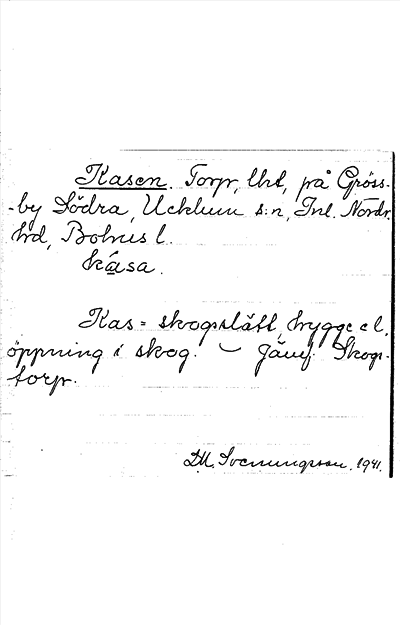 Kasen. Torp, lht, på Gröss-
-by Södra, Ucklum s:n, Inl. Nordr.
hrd, Bohus l.
kasa.
Kas = skogsslätt, hygge el.
öppning i skog. – Jämf. Skogs-
torp.
D.M. Svenungsson. 1941.